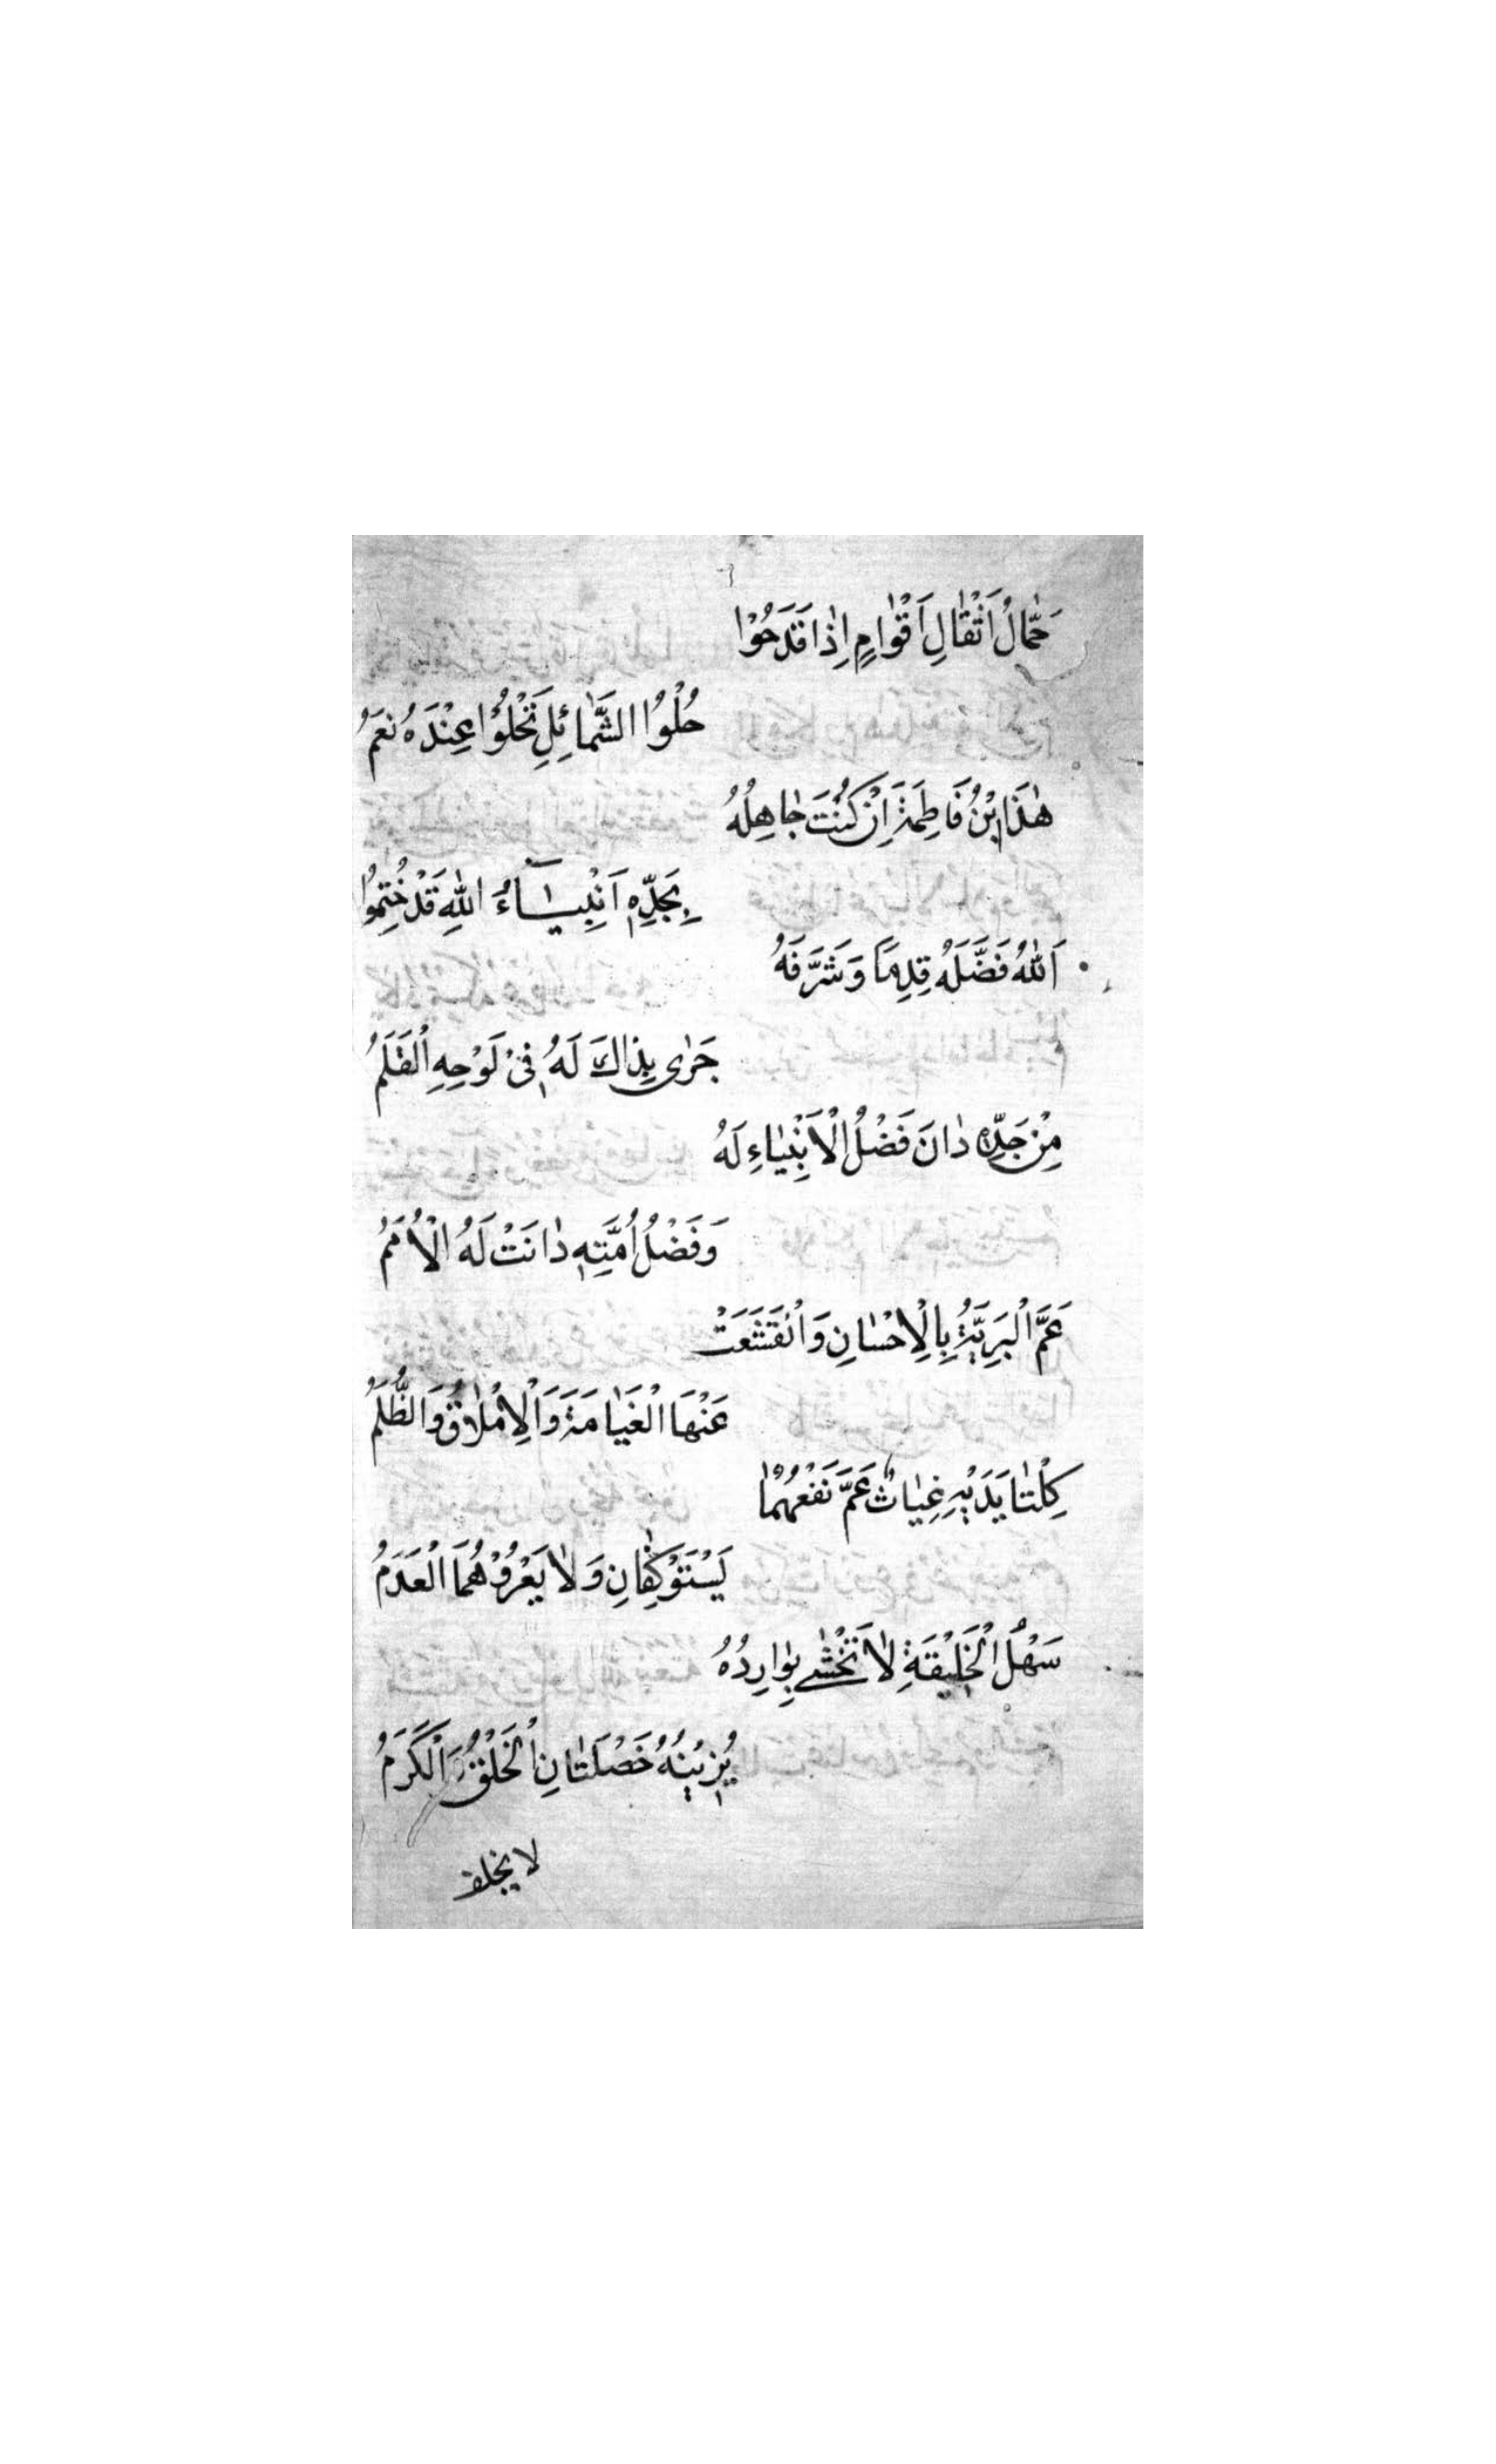 حَمَّالُ اَثْقَالِ اَقْوَامٍ اِذَا قَدَحُوْا
حُلْوُا الشَّمَائِلِ تَحْلُوْا عِنْدَهُ نَعَمُ
هٰذَا بْنُ فَاطِمَةَ اِنْ كُنْتَ جَاهِلُهُ
بِجَدِّهِ اَنْبِيَآءُ اللّٰهِ قَدْ خُتِمُوْا
اَللّٰهُ فَضَّلَهُ قِدِمًا وَشَرَّفَهُ
جَرٰى بِذَاكَ لَهُ فِىْ لَوْحِهِ الْقَلَمُ
مِنْ جَدِّهِ دَانَ فَضْلُ الْاَنْبِيَاءِ لَهُ
وَفَضْلُ اُمَّتِهِ دَانَتْ لَهُ الْاُمَمُ
عَمَّ الْبَرِيَّةُ بِالْاِحْسَانِ وَانْقَشَعَتْ
عَنْهَا الْغَيَامَةَ وَالْاِمْلَاقُ وَالظُّلَمُ
كِلْتَا يَدَيْهِ غِيَاثٌ عَمَّ نَفْعُهُمَا
يَسْتَوْكِفَانِ وَلَا يَعْرُوْهُمَا الْعَدَمُ
سَهْلُ الْخَلِيْقَةِ لَا تَخْشٰى بِوَارِدُهُ
يُزِيْنُهُ خَصْلَتَانِ الْخَلْقُ وَالْكَرَمُ
لا يخلف